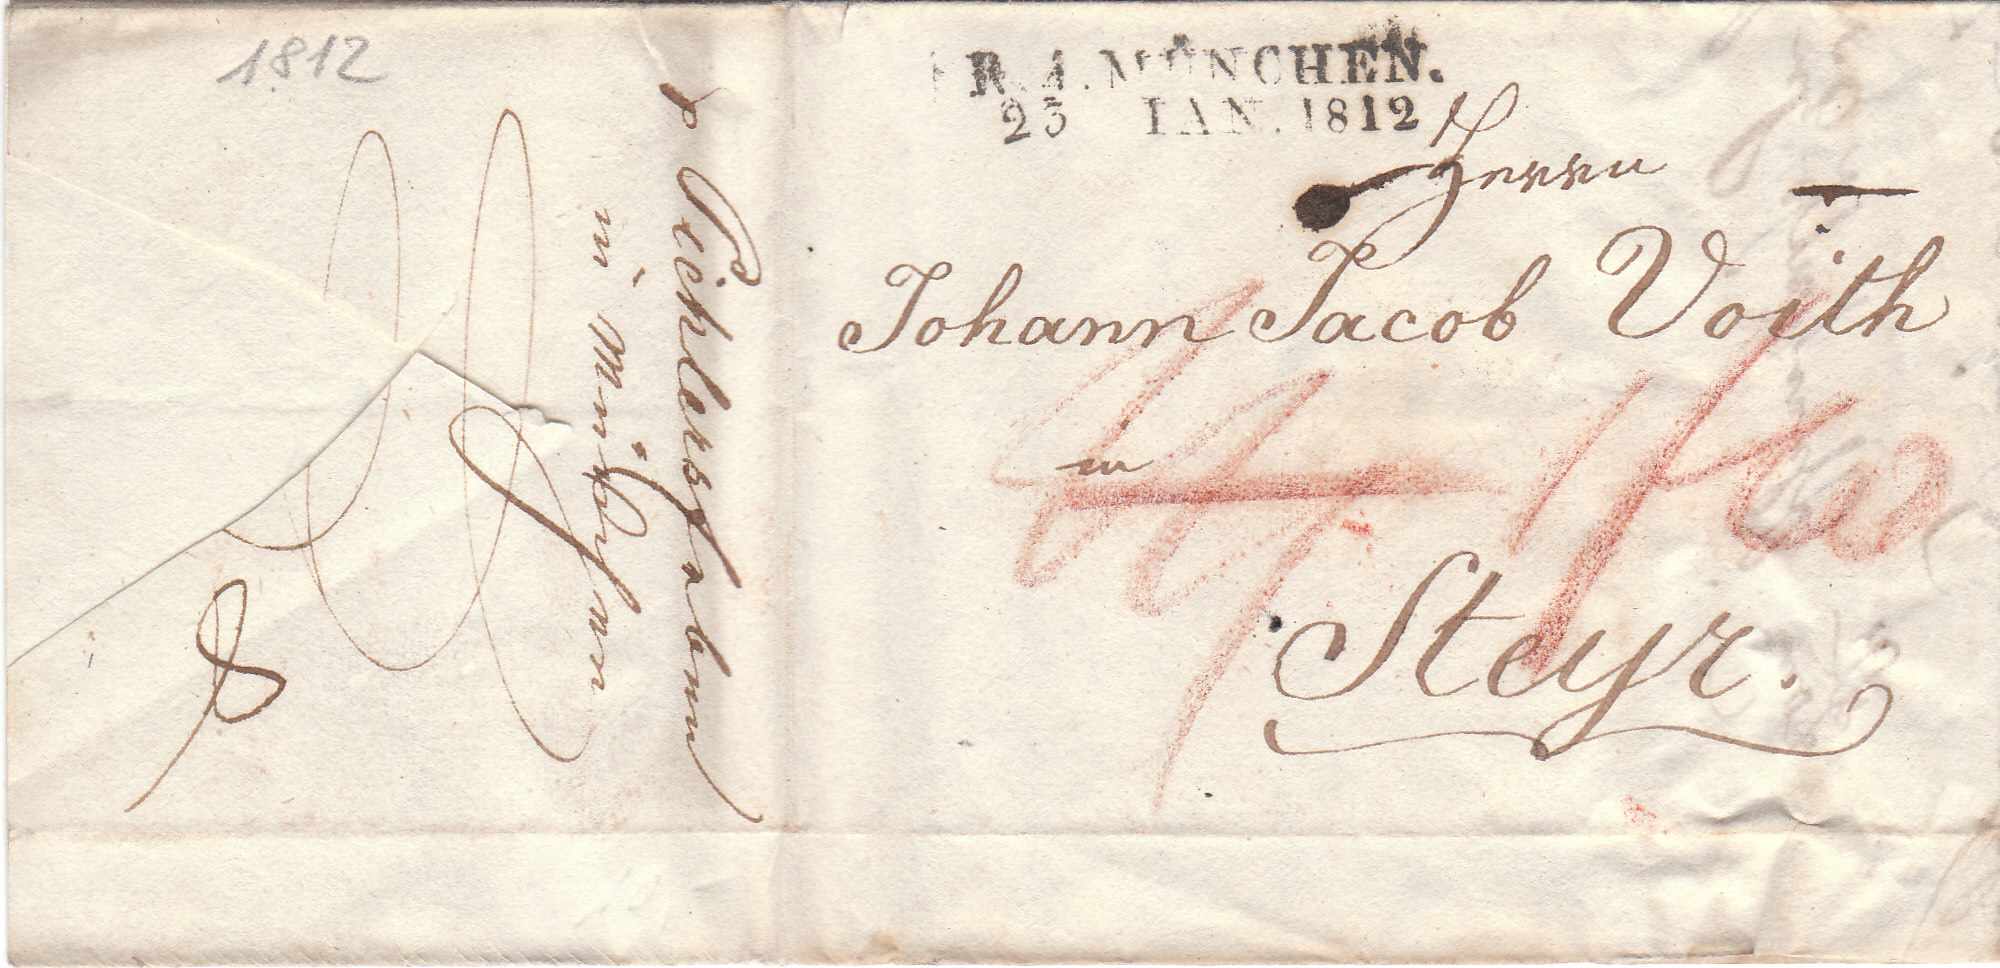 1812
R. 4. MÜNCHEN.
23 IAN. 1812
Herrn
Johann Jacob Voith
in
Steyr.
p Pichlers
in München